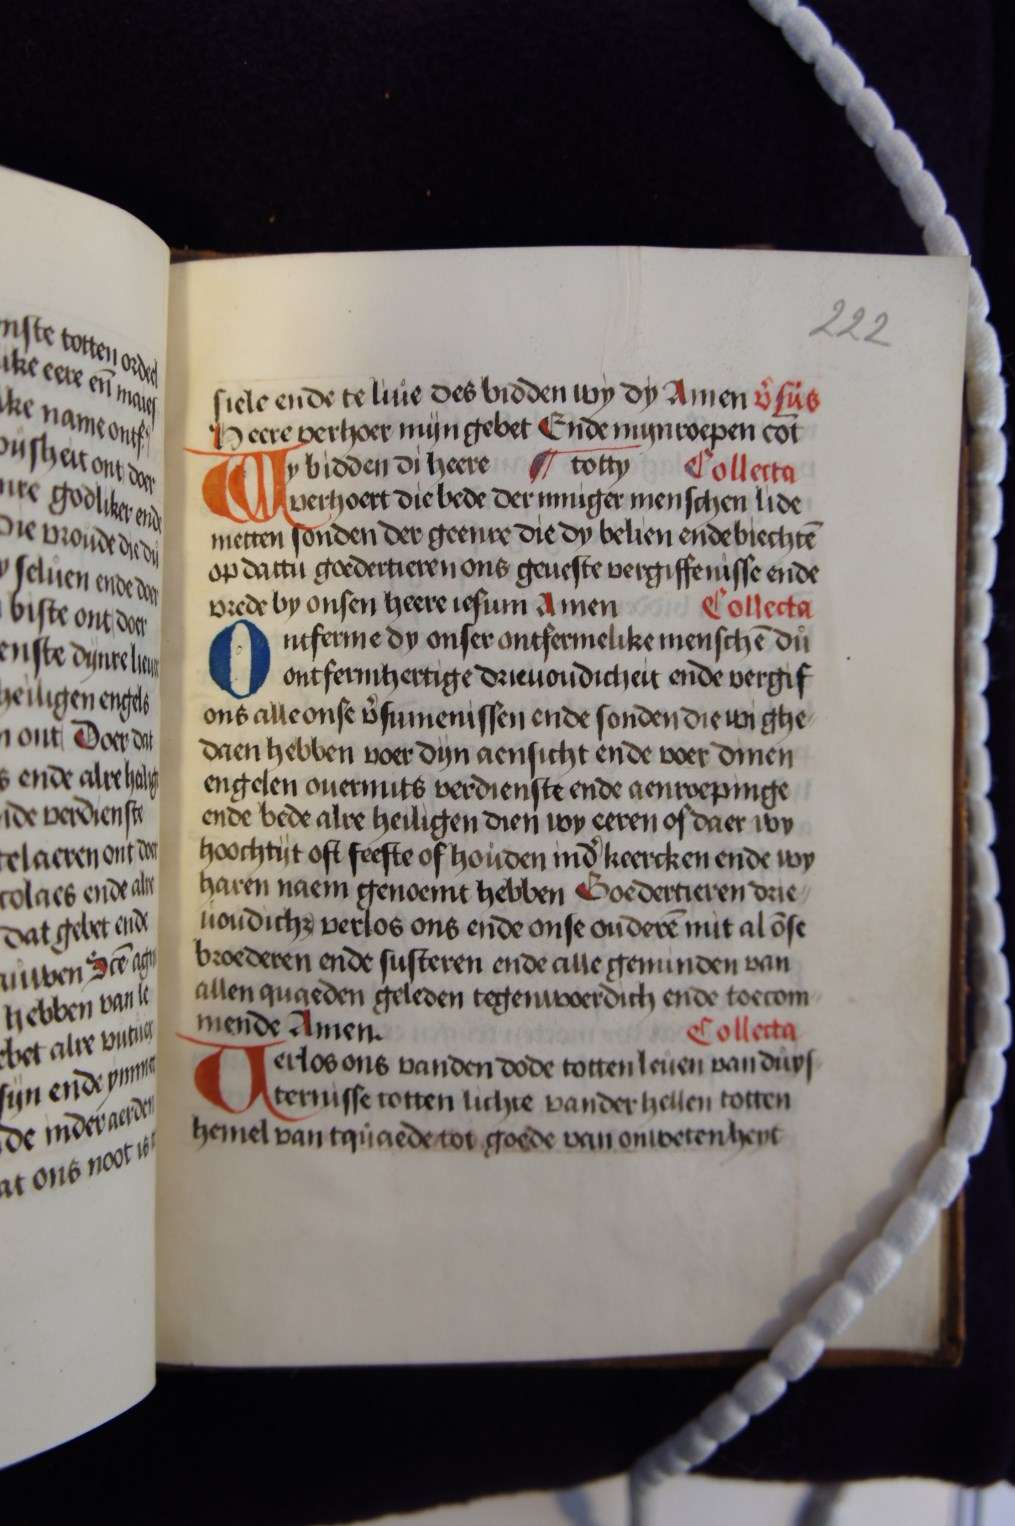 nste totten ordeel
like eere en̄ maies
ake name
heit ont doer
godliker ende
Die vroude die du
seluen ende doer
biste ont doer
enste dynre lieu
heiligen engels
n ont Doer dat
s ende alre heilig
nde verdienste
telaeren ont doer
colaes ende alre
dat gebet ende
auwen Scē agn
hebben van le
ebet alre
sijn ende ymmer
de inder aerden
at ons noot is
222
siele ende te liue des bidden wy dy Amen v̄sus
Heere verhoer mijn gebet Ende mijn roepen cōt
Wy bidden di heere totty Collecta
verhoert die bede der inniger menschen lide
metten sonden der geenre die dy belien ende biechtē
op dattu goedertieren ons geueste vergiffenisse ende
vrede by onsen heere iesum Amen Collecta
Ontferme dy onser ontfermelike menschē du
ontfermhertige drieuoudicheit ende vergif
ons alle onse v̄sumenissen ende sonden die wi ghe
daen hebben voer dijn aensicht ende voer dinen
engelen ouermits verdienste ende aenroepinge
ende bede alre heiligen dien wy eeren of daer wy
hoochtijt oft feeste of houden ind̄ keercken ende wy
haren naem genoemt hebben Goedertieren drie
uoudichꝫ verlos ons ende onse ouderē mit al ōse
broederen ende susteren ende alle geminden van
allen quaeden geleden tegenwoerdich ende toecom
mende Amen. Collecta
Uerlos ons vanden dode totten leuen van duys
ternisse totten lichte vander hellen totten
hemel van tquaede tot goede van onwetenheyt